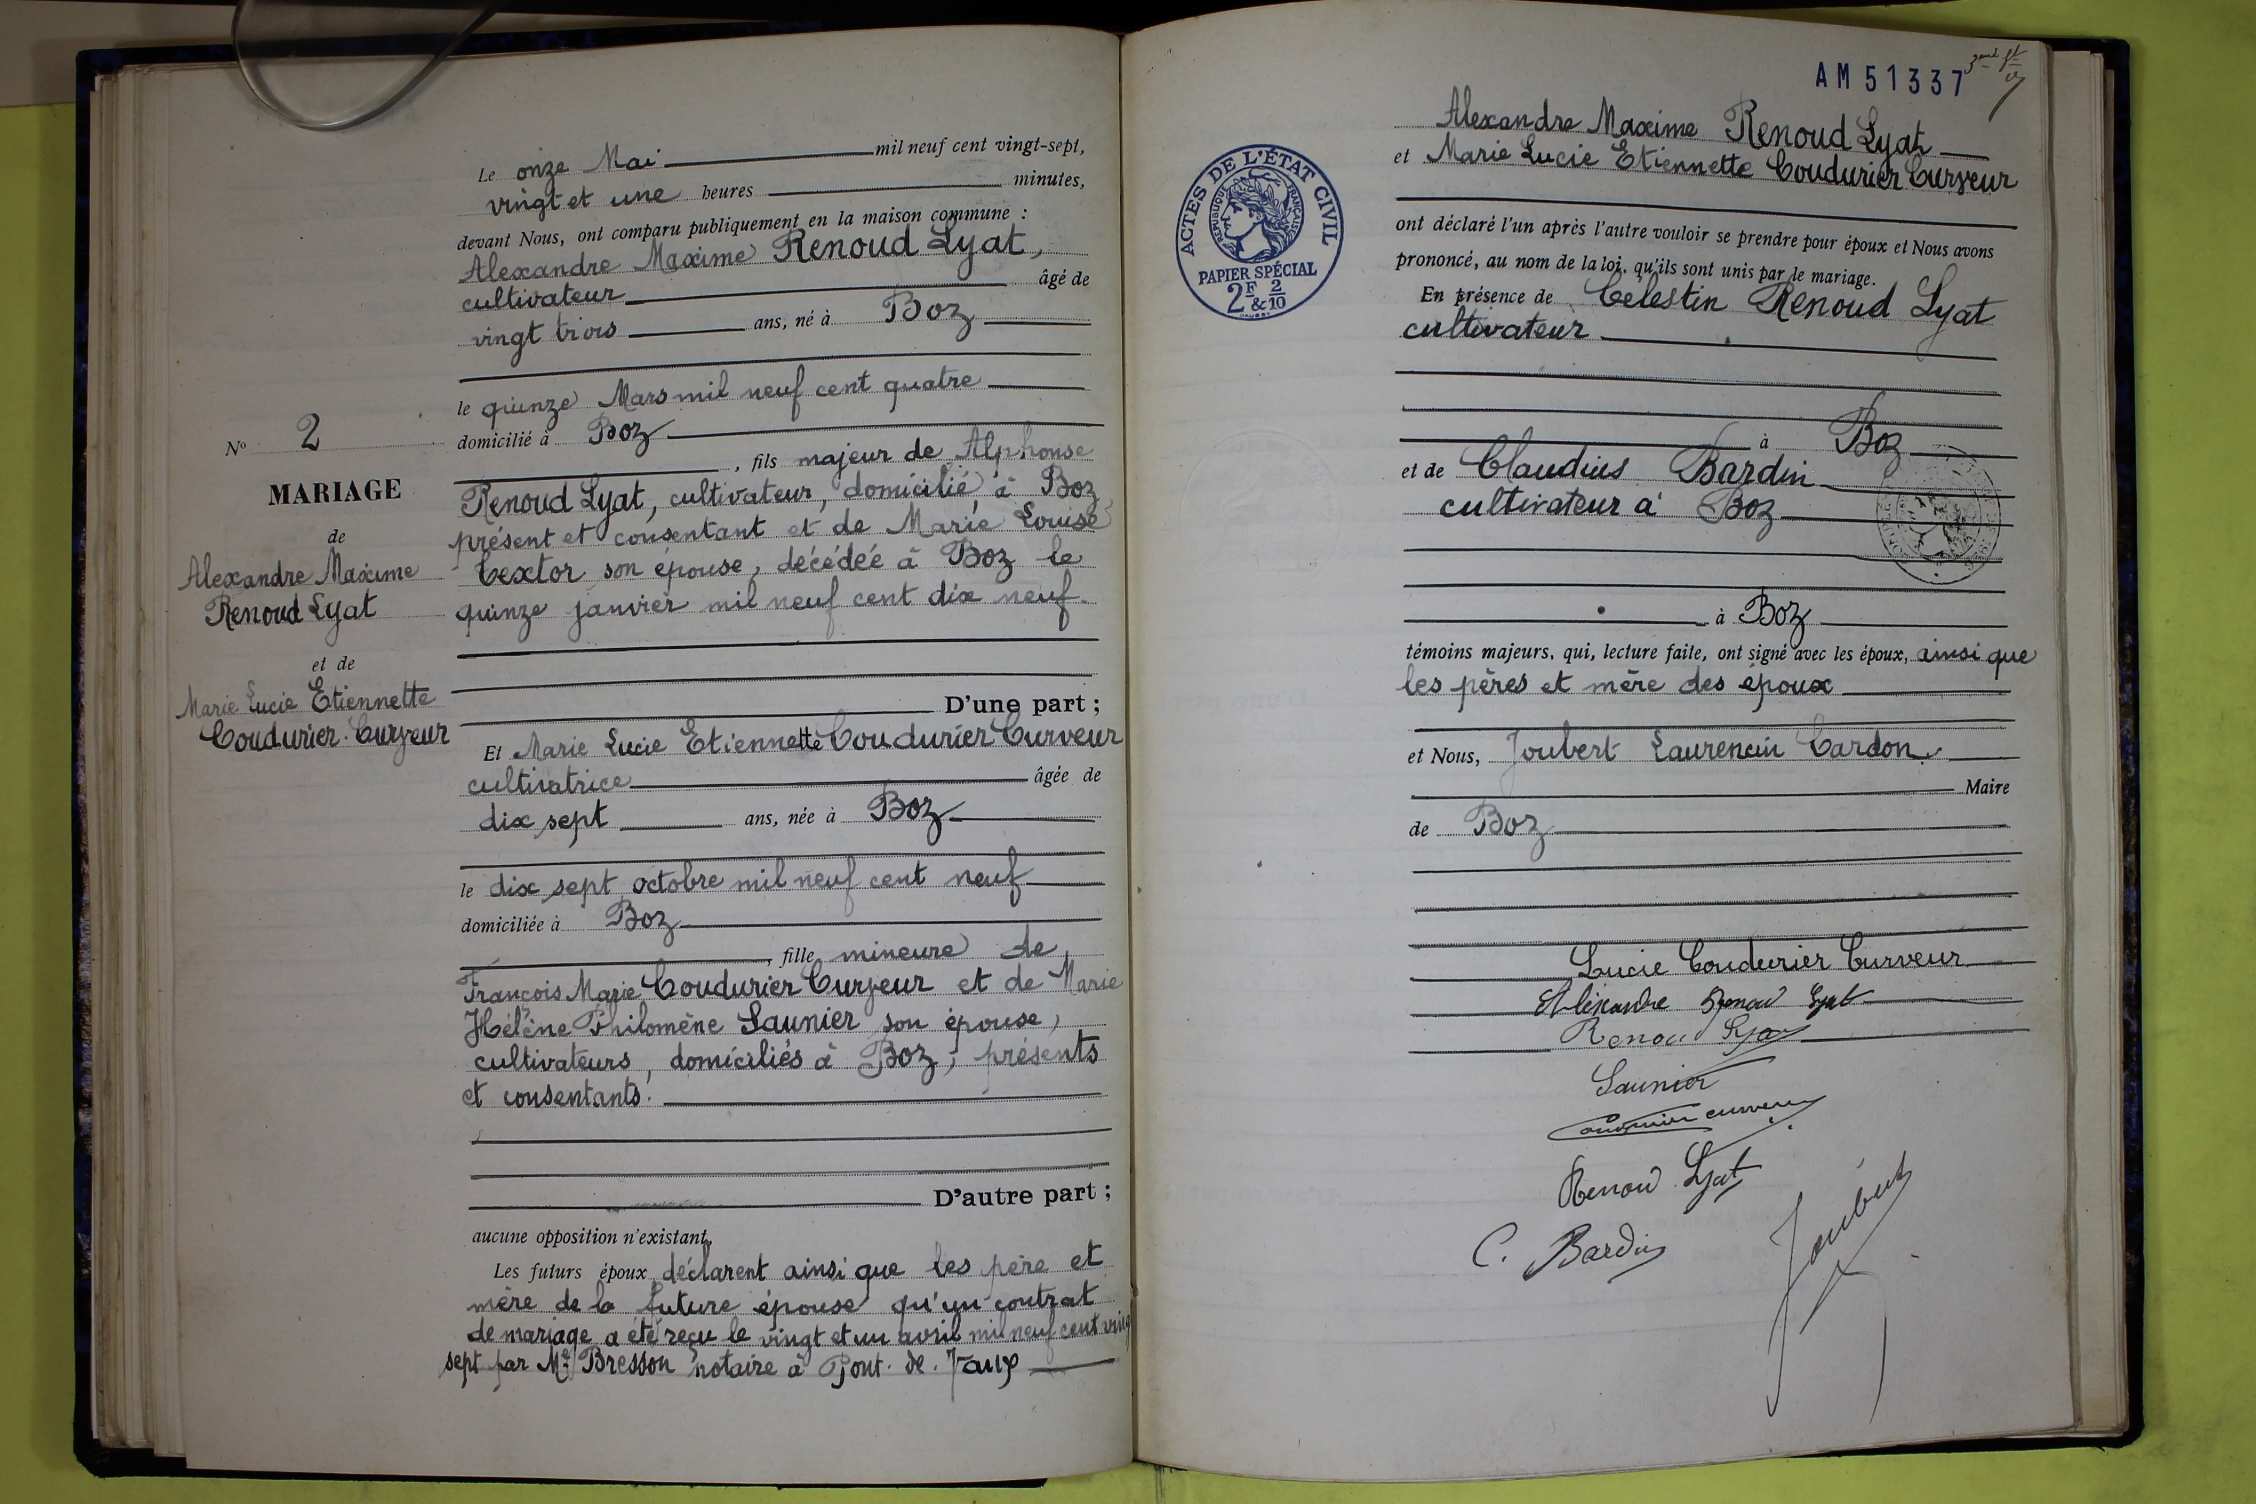 N° 2
MARIAGE
de
Alexandre Maxime
Renoud Lyat
et de
Marie Lucie Etiennette
Coudurier-Curveur
Le onze Mai mil neuf cent vingt-sept,
vingt et une heures minutes,
devant Nous, ont comparu publiquement en la maison commune :
Alexandre Maxime Renoud Lyat,
cultivateur âgé de
vingt trois ans, né à Boz
le quinze Mars mil neuf cent quatre
domicilié à Boz
, fils majeur de Alphonse
Renoud Lyat, cultivateur, domicilié à Boz
présent et consentant et de Marie Louise
Textor son épouse, décédée à Boz le
quinze janvier mil neuf cent dix neuf.
D'une part ;
Et Marie Lucie Etiennette Coudurier Curveur
cultivatrice âgée de
dix sept ans, née à Boz
le dix sept octobre mil neuf cent neuf
domiciliée à Boz
, fille mineure de
François Marie Coudurier Curveur et de Marie
Hélène Philomène Saunier son épouse,
cultivateurs, domiciliés à Boz, présents
et consentants.
D'autre part ;
aucune opposition n'existant,
Les futurs époux déclarent ainsi que les père et
mère de la future épouse qu'un contrat
de mariage a été reçu le vingt et un avril mil neuf cent vingt
sept par Me Bresson notaire à Pont-de-Vaux
AM 51337
ACTES DE L'ÉTAT CIVIL
RÉPUBLIQUE FRANÇAISE
PAPIER SPÉCIAL
2F & 2/10
Alexandre Maxime Renoud Lyat
et Marie Lucie Etiennette Coudurier Curveur
ont déclaré l'un après l'autre vouloir se prendre pour époux et Nous avons
prononcé, au nom de la loi, qu'ils sont unis par le mariage.
En présence de Célestin Renoud Lyat
cultivateur
à Boz
et de Claudius Bardin
cultivateur à Boz
à Boz
témoins majeurs, qui, lecture faite, ont signé avec les époux, ainsi que
les pères et mère des époux
et Nous, Joubert Laurencin Cardon
Maire
de Boz
Lucie Coudurier Curveur
Alexandre Renoud Lyat
Renoud Lyat
Saunier
Coudurier curveur
Renoud Lyat
C. Bardin
Joubert